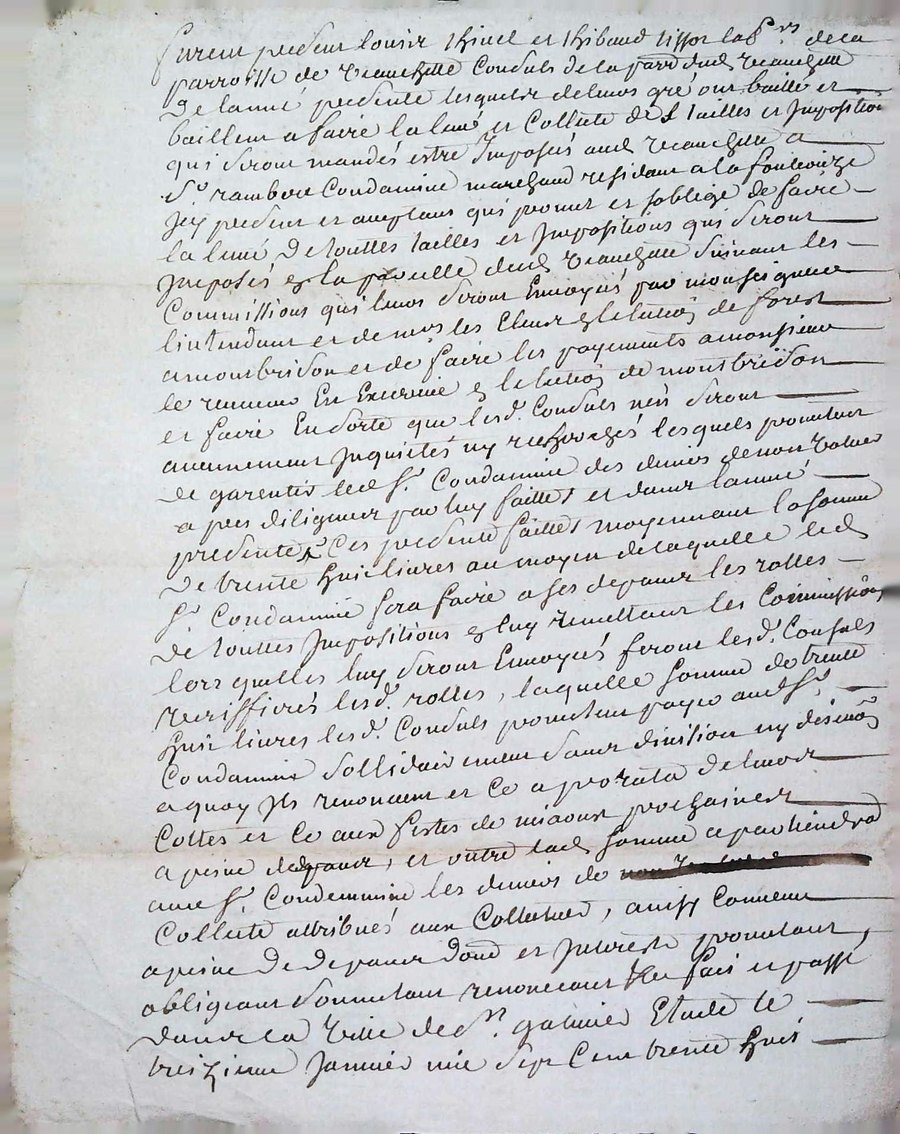 furent present Louis thinel et thibaud tissor lab.rs de la
parroisse de veauchette Consuls de la parr dud veauchette
De lannee presente lesquels de leurs gré ont baillé et
baillent a faire la levé et Collecte de s tailles et Imposition
qui seront mandés estre Imposés aud veauchette a
sr. rambore Condamine marchand residant a la fouliouze
Icy present et aceptant qui promet et soblige de faire
la levé De touttes tailles et Impositions qui seront
Imposés en la parr dud veauchette suivant les
Commissions qui leurs seront Envoyés par monseigneur
lintendant et de mrs les Eleus en lelection de forest
a montbrison et de faire les payements a monsieur
le receveur En Exercice en lelection de montbrison
et faire En sorte que lesd. Consuls nen seront
aucunement Inquiétés ny recherchés lesquels promettent
De garentir led sr. Condamine des deniers de non valeur
a peu diligences par luy faittes et dans lannée
presente Ces presente faittes moyennant la somme
De trente huit livres au moyen de laquelle led
sr. Condamine sera faire a ses depans les rolles
De touttes Impositions en luy remettant les Commissions
lors quelles luy seront Envoyés feront lesd. Consuls
veriffier lesd. rolles, laquelle somme de trente
huit livres lesd. Consuls promettent payer aud sr.
Condamine sollidairement sans division ny discution
a quoy Ils renoncent et Ce a prorata de leurs
Cottes et Ce aux festes de miaoust prochaines
a peine de depans, et outre lad somme apartiendra
aud sr. Condemmine les deniers de
Collecte attribués aux Collecteurs, ainssy Convenu
a peine De depans dom et Interests promettant,
obligeant soumettant renoncant fait et passé
Dans la ville de st galmier Etude le
treizieme Janvier mil sept Cent trente huit